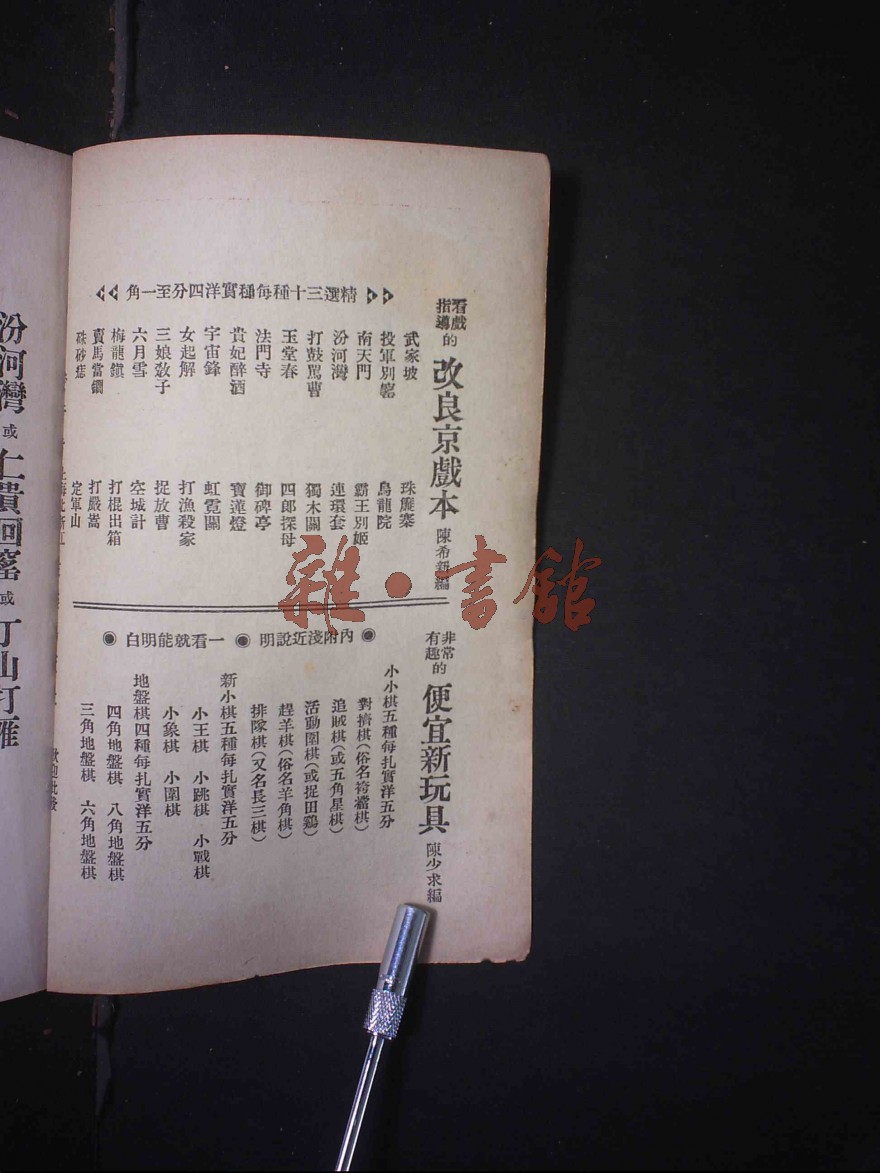 看戲指導的 改良京戲本 陳希新編
精選三十種每種實洋四分至一角
武家坡 珠簾寨
投軍別窰 烏龍院
南天門 霸王別姬
汾河灣 連環套
打鼓罵曹 獨木關
玉堂春 四郎探母
法門寺 御碑亭
貴妃醉酒 寶蓮燈
宇宙鋒 虹霓關
女起解 打漁殺家
三娘敎子 捉放曹
六月雪 空城計
梅龍鎭 打棍出箱
賣馬當鐧 打嚴嵩
硃砂痣 定軍山
非常有趣的 便宜新玩具 陳少求編
內附淺近說明 一看就能明白
小小棋五種每扎實洋五分
對擠棋(俗名袴襠棋)
追賊棋(或五角星棋)
活動圍棋(或捉田鷄)
趕羊棋(俗名羊角棋)
排隊棋(又名長三棋)
新小棋五種每扎實洋五分
小王棋 小跳棋 小戰棋
小象棋 小圍棋
地盤棋四種每扎實洋五分
四角地盤棋 八角地盤棋
三角地盤棋 六角地盤棋
歡迎批發
汾河灣 或 仁貴回窰 或 打雁
雜・書館